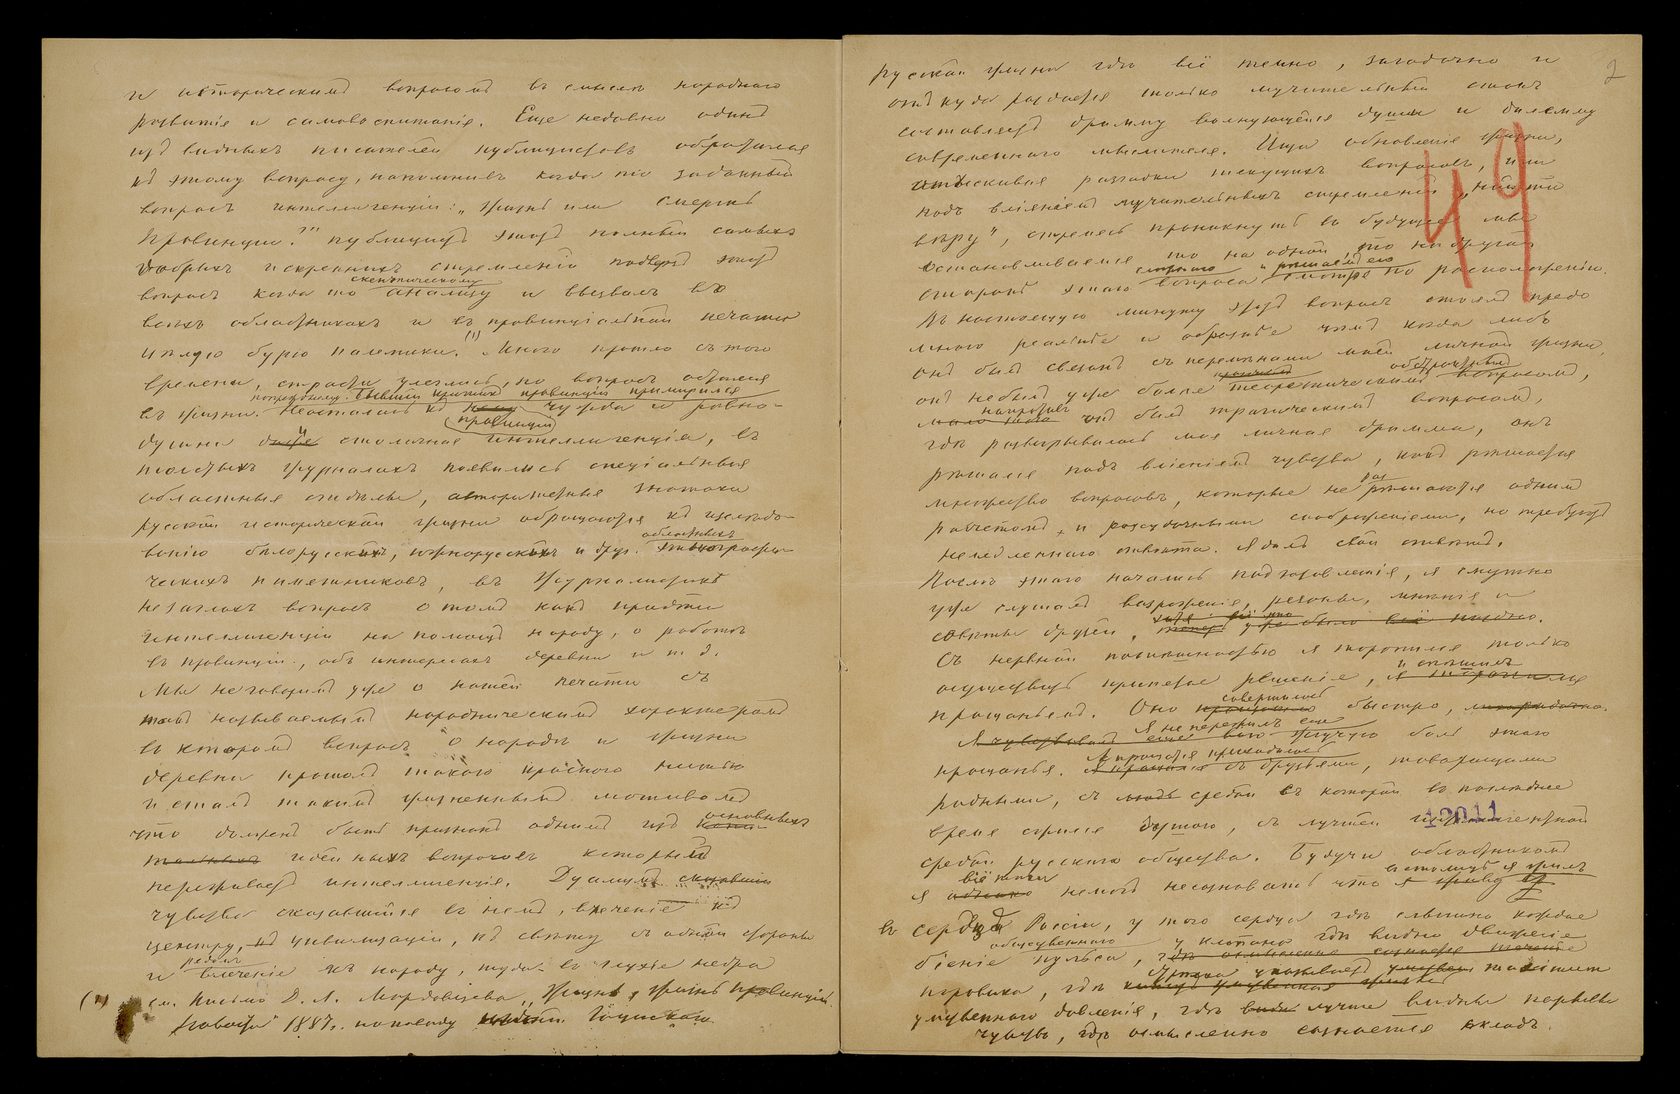 и историческимъ вопросомъ въ смыслѣ народнаго
развитія и самовоспитанія. Еще недавно одинъ
изъ видныхъ писателей публицистовъ обратился
къ этому вопросу, напомнивъ когда то заданный
вопросъ интеллигенціи: „Жизнь или смерть
провинціи?" публицистъ этотъ полный самыхъ
добрыхъ искреннихъ стремленій подвергъ этотъ
скептическому
вопросъ когда то анализу и вызвалъ въ
всѣхъ областникахъ и въ провинціальной печати
цѣлую бурю полемики. (1) Много прошло съ того
времени, страсти улеглись, но вопросъ остался
попрежнему. Бывшій критикъ провинціи примирился
въ жизни. Не осталась къ чужда и равно-
провинціи
душна столичная интеллигенція, въ
толстыхъ журналахъ появились спеціальныя
областные отдѣлы, авторитетные знатоки
русской исторической жизни обращаются къ изслѣдо-
областныхъ
ванію бѣлорусскихъ, южнорусскихъ и друг. этнографи-
ческихъ памятниковъ, въ журналистикѣ
не заглохъ вопросъ о томъ какъ придти
интеллигенціи на помощь народу, о работѣ
въ провинціи, объ интересахъ деревни и т. д.
Мы не говоримъ уже о нашей печати съ
такъ называемымъ народническимъ характеромъ
въ которомъ вопросъ о народѣ и жизни
деревни прошелъ такою красною нитью
и сталъ такимъ жизненнымъ мотивомъ
что долженъ быть признанъ однимъ изъ основныхъ
идейныхъ вопросовъ который
переживаетъ интеллигенція. Дуализмъ
чувства сказавшійся въ немъ, влеченіе къ
центру, къ цивилизаціи, къ свѣту съ одной стороны
рядомъ
и влеченіе къ народу, туда въ глухіе нѣдра
(1) см. Письмо Д. Л. Мордовцева „Жизнь провинціи
Новости" 1887 г. по поводу
2
русской жизни гдѣ всё темно, загадочно и
откуда раздается только мучительный стонъ
составляетъ драмму волнующейся души и дилемму
современнаго мыслителя. Ища обновленіе жизни,
отыскивая разгадки текущихъ вопросовъ, или
подъ вліяніемъ мучительныхъ стремленій „найти
вѣру", стремясь проникнуть въ будущее мы
останавливаемся то на одной то на другой
сторонѣ этого вопроса, смотря по расположенію.
Въ настоящую минуту этотъ вопросъ стоялъ предо
мною реальнѣе и образнѣе чѣмъ когда либо
онъ былъ связанъ съ перемѣнами моей личной жизни,
онъ не былъ уже болѣе теоретическимъ вопросомъ,
напротивъ онъ былъ трагическимъ вопросомъ,
гдѣ разыгрывалась моя личная драмма, онъ
рѣшался подъ вліяніемъ чувства, какъ рѣшается
множество вопросовъ, которые не разрѣшаются однимъ
разсчетомъ и разсудочными соображеніями, но требуютъ
немедленнаго отвѣта. Я далъ свой отвѣтъ.
Послѣ этого начались подготовленія, я смутно
уже слушалъ возраженія, резоны, мнѣнія и
совѣты друзей, уже было всё поздно.
Съ нервной поспѣшностью я торопился только
осуществить принятое рѣшеніе, и спѣшилъ
прощаньемъ. Оно совершилось быстро, лихорадочно.
Я не пережилъ еще жгучую боль этого
прощанья. Я прощался съ друзьями, товарищами
родными, съ средой съ которой въ послѣднее
время сжился душою, съ лучшей интеллигентной
средой русскаго общества. Будучи областникомъ
всё таки
я не могъ не сознавать что я жилъ
въ сердцѣ Россіи, у того сердца гдѣ слышно каждое
общественнаго
біеніе пульса, у клапана гдѣ видно движеніе
паровика, гдѣ стрѣлка указываетъ maximum
умственнаго давленія, гдѣ лучше видны первыя
чувства, гдѣ осмысленно слагается складъ.
49
12011